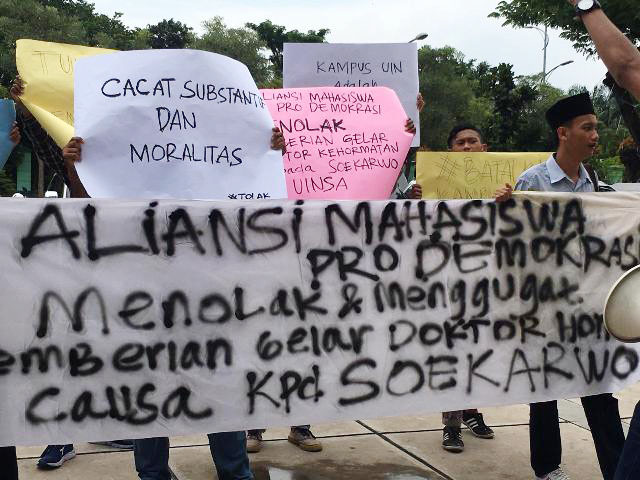 CACAT SUBSTANTIF
DAN
MORALITAS
#TOLAK
KAMPUS UIN
Adalah
ALIANSI MAHASISWA
PRO DEMOKRASI
ENOLAK
BERIAN GELAR
KTOR KEHORMATAN
Pada SOEKARWO
UINSA
#BATAL
ALIANSI MAHASISWA
PRO DEMOKRASI
MENOLAK & Menggugat
emberian Gelar DOKTOR HON
Causa Kpd SOEKARWO